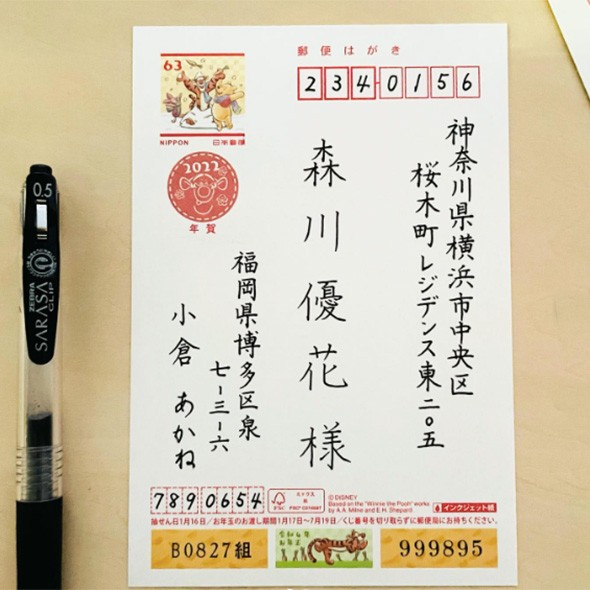 63
NIPPON 日本郵便
郵便はがき
2340156
神奈川県横浜市中央区
桜木町レジデンス東二〇五
森川優花様
2022
年賀
福岡県博多区泉
七-三-六
小倉 あかね
7890654
FSC
ミックス
紙
© DISNEY
Based on the "Winnie the Pooh" works
by A.A. Milne and E.H. Shepard.
インクジェット紙
抽せん日1月16日/お年玉のお渡し期間1月17日〜7月19日/くじ番号を切り取らずに郵便局にお持ちください。
B0827組
令和4年
お年玉
999895
0.5
ZEBRA
SARASA
CLIP